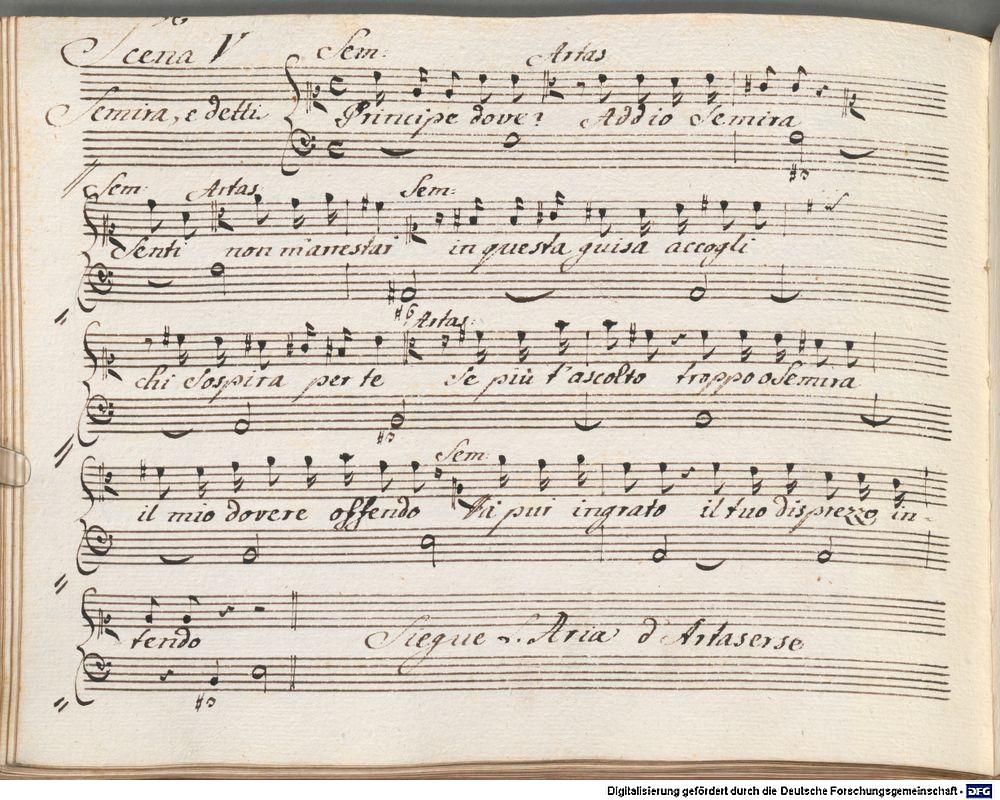 Scena V
Sem: Artas
Semira, e detti.
Principe dove? Addio Semira
Sem: Artas Sem:
Senti non m'arrestar in questa guisa accogli
Artas:
chi sospira per te se più t'ascolto troppo o Semira
Sem:
il mio dovere offendo Và pur ingrato il tuo disprezzo in-
tendo
Siegue L'Aria d'Artaserse
Digitalisierung gefördert durch die Deutsche Forschungsgemeinschaft - DFG